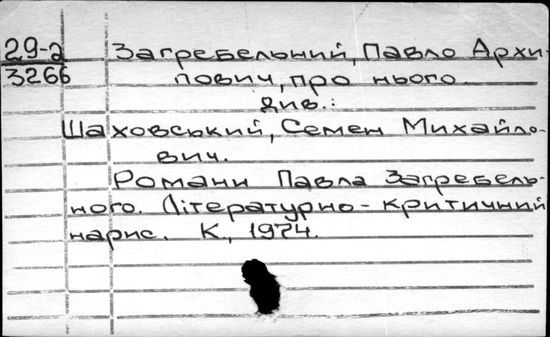 29-2 Загребельний, Павло Архи-
3266 пович, про нього
див.:
Шаховський, Семен Михайло-
вич.
Романи Павла Загребель-
ного. Літературно-критичний
нарис. К., 1974.